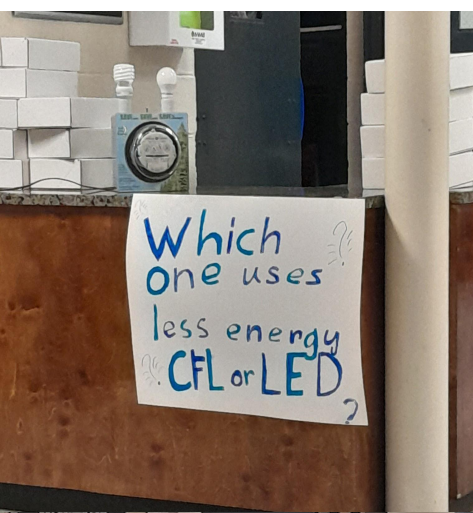 Which
one uses
less energy
CFL or LED
?